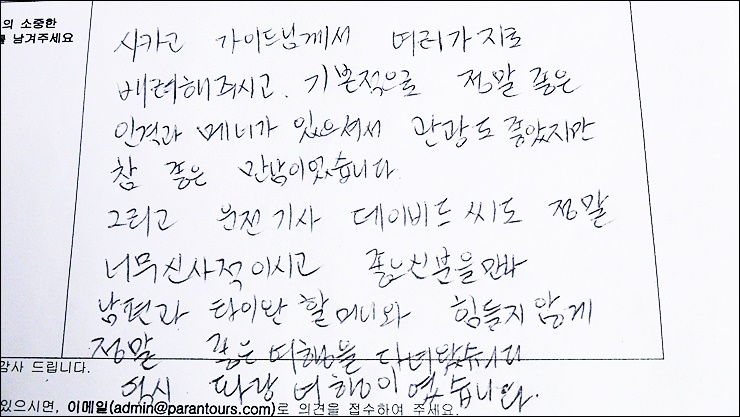 의 소중한
를 남겨주세요
시카고 가이드님께서 여러가지로
배려해주시고. 기본적으로 정말 좋은
인격과 매너가 있으셔서 관광도 좋았지만
참 좋은 만남이었습니다.
그리고 운전기사 데이비드씨도 정말
너무 신사적이시고 좋으신분을 만나
남편과 타이완 할머니와 힘들지 않게
정말 좋은 여행을 다녀왔습니다
감사 드립니다.
역시 파랑 여행이였습니다.
있으시면, 이메일(admin@parantours.com)로 의견을 접수하여 주세요.